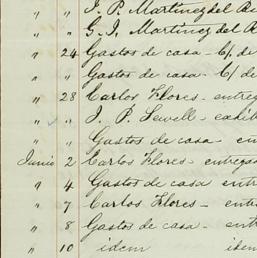 " " J. P. Martinez del
" " G. J. Martinez del
" 24 Gastos de casa - C/. de
" " Gastos de casa - C/ de
" 28 Carlos Flores - entreg
" " J. P. Sewell - exhib
" Gastos de casa en
Junio 2 Carlos Flores - entrega
" 4 Gastos de casa entr
" 7 Carlos Flores - entr
" 8 Gastos de casa - entr
" 10 idem idem